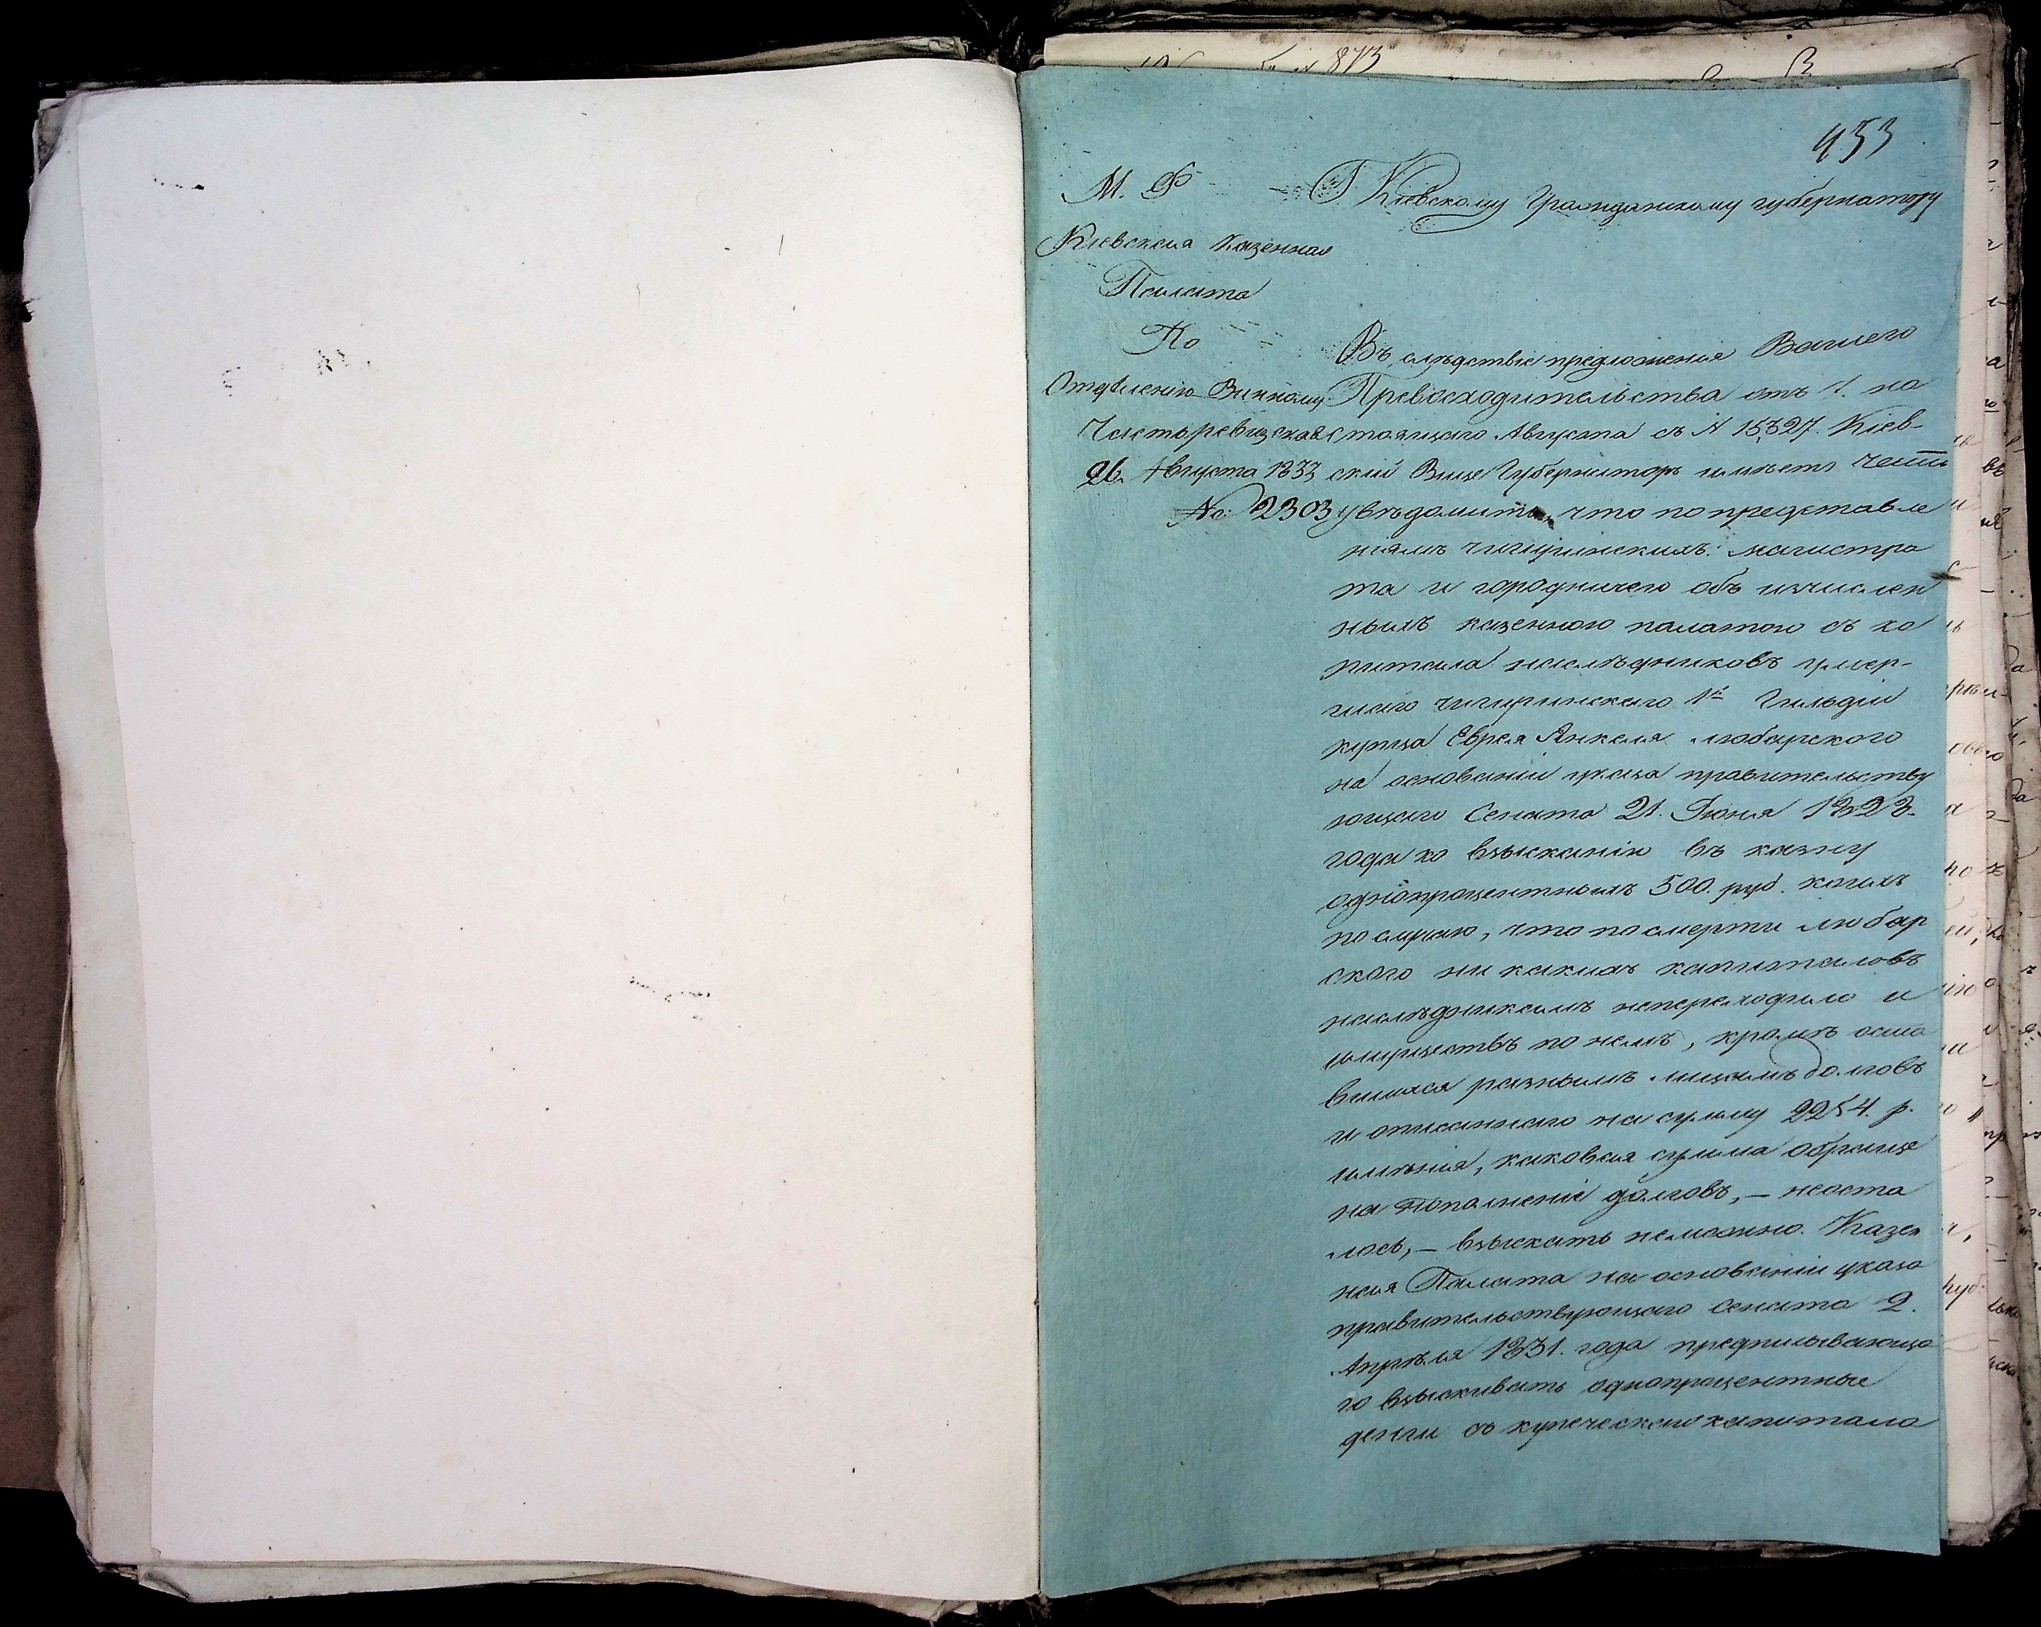 453
М. Ф.
Кіевская Казенная
Палата
По
Отдѣленію Винному
Часть ревизская
26. Августа 1833
№ 2303
Г. Кіевскому Гражданскому губернатору
Въ слѣдствіе предложенія Вашего
Превосходительства отъ 1. на
стоящаго Августа съ № 15,327. Кіев-
скій Вице Губернаторъ имѣетъ честь
увѣдомить, что по представле
ніямъ чигиринскихъ: магистра
та и городничего объ исчислен
ныхъ казенною палатою съ ка
питала наслѣдниковъ умер-
шаго чигиринскаго 1й Гильдіи
купца Еврея Анкеля Любарского
на основаніи указа правительству
ющаго Сената 21. Іюня 1823.
года ко взысканію въ казну
однопроцентныхъ 500. руб. коихъ
по случаю, что по смерти Любар
ского ни какихъ капиталовъ
наслѣдникамъ непереходило и
имуществъ по немъ, кромѣ оста
вшихся разнымъ лицамъ долговъ
и описаннаго на сумму 2254. р.
имѣнія, каковая сумма обраще
на пополненіе долговъ, – неоста
лось, – взыскать неможно. Казен
ная Палата на основаніи указа
правительствующаго Сената 2.
Апрѣля 1831. года предписывающа
го взыскивать однопроцентные
деньги съ купеческаго капитала